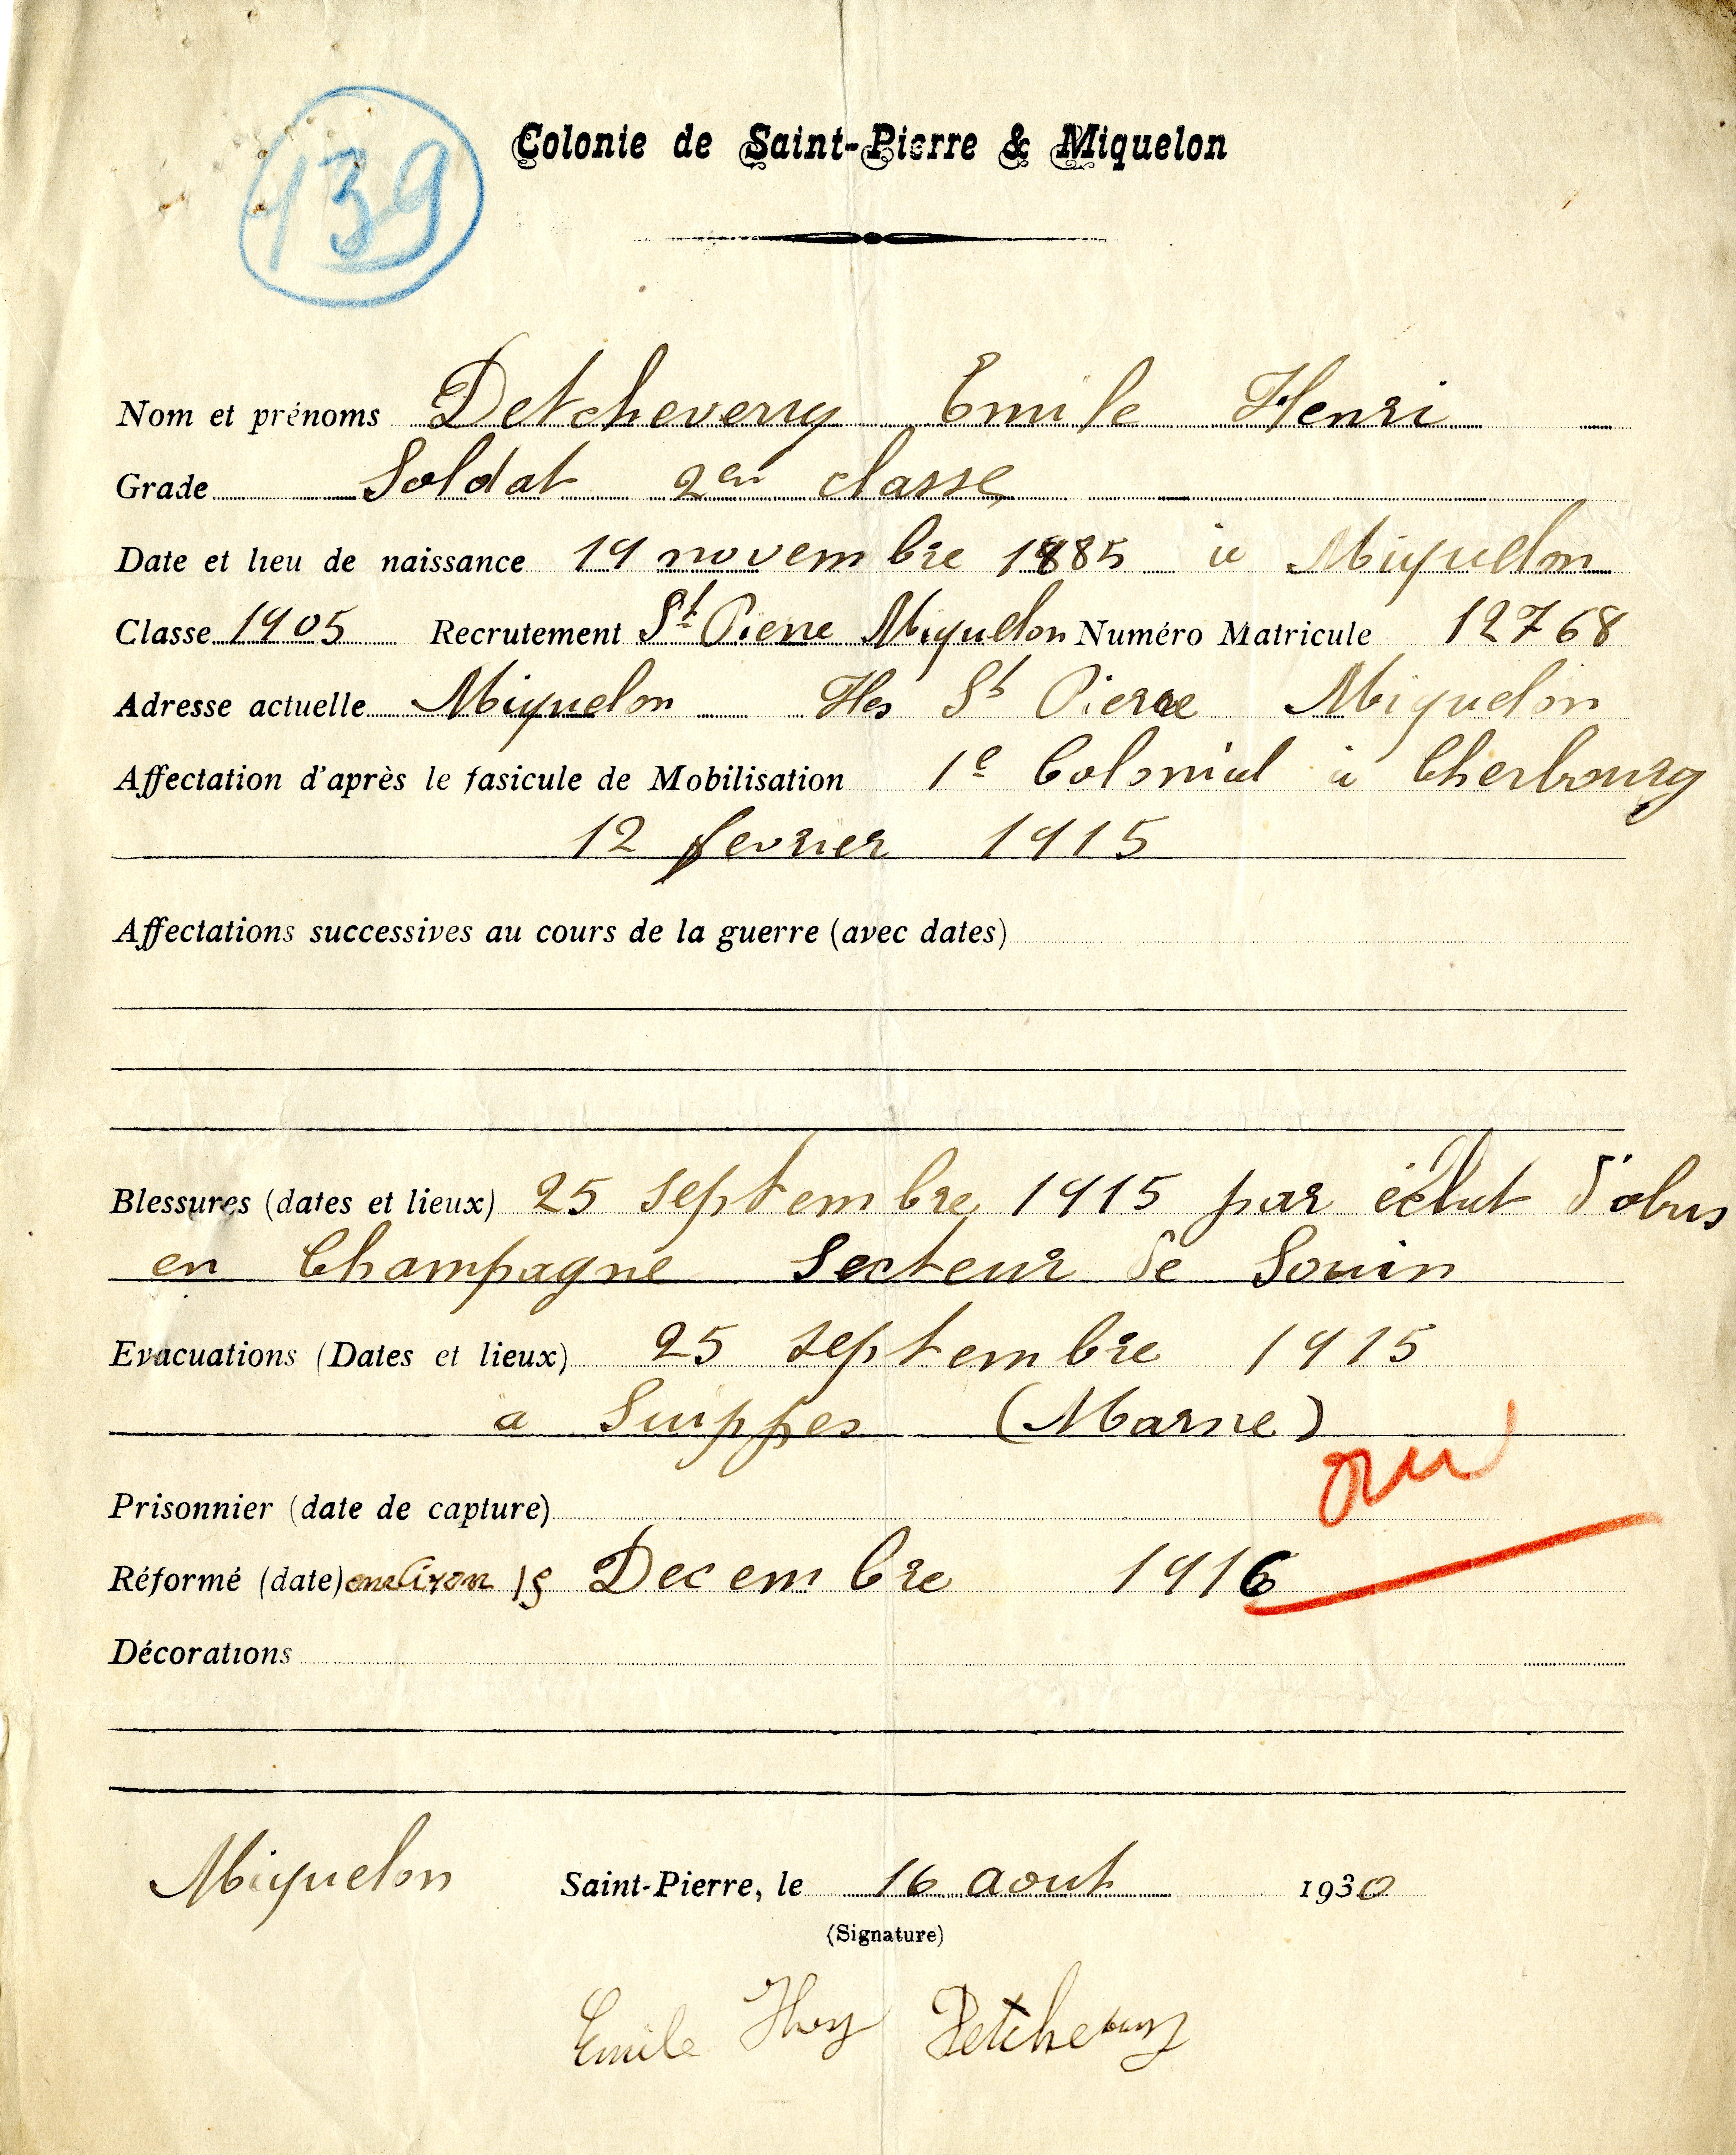 139
Colonie de Saint-Pierre & Miquelon
Nom et prénoms Detcheverry Emile Henri
Grade Soldat 2en classe
Date et lieu de naissance 19 novembre 1885 à Miquelon
Classe 1905 Recrutement St Pierre Miquelon Numéro Matricule 12768
Adresse actuelle Miquelon Iles St Pierre Miquelon
Affectation d'après le fasicule de Mobilisation 1e Colonial à Cherbourg
12 fevrier 1915
Affectations successives au cours de la guerre (avec dates)
Blessures (dates et lieux) 25 septembre 1915 par éclat d'obus
en Champagne Secteur de Souin
Evacuations (Dates et lieux) 25 septembre 1915
a Suippes (Marne)
oui
Prisonnier (date de capture)
Réformé (date) environ 15 Decembre 1916
Décorations
Miquelon Saint-Pierre, le 16 aout 1930
(Signature)
Emile Detcheverry